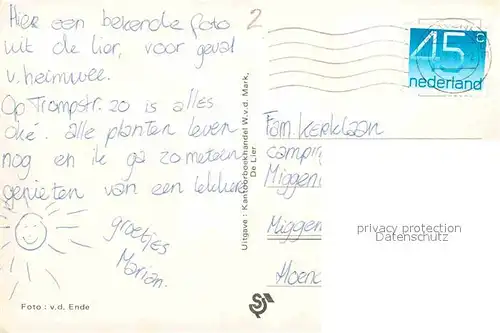 Hier een bekende foto
uit de lier, voor geval
v. heimwee.
Op Trompstr. 20 is alles
oké. alle planten leven
nog en ik ga zo meteen
genieten van een lekkere
groetjes
Marian.
Foto : v.d. Ende
2
Uitgave : Kantoorboekhandel W.v.d. Mark,
De Lier
45 c
nederland
Fam. Kerklaan
campin
Miggen
Miggen
privacy protection
Datenschutz